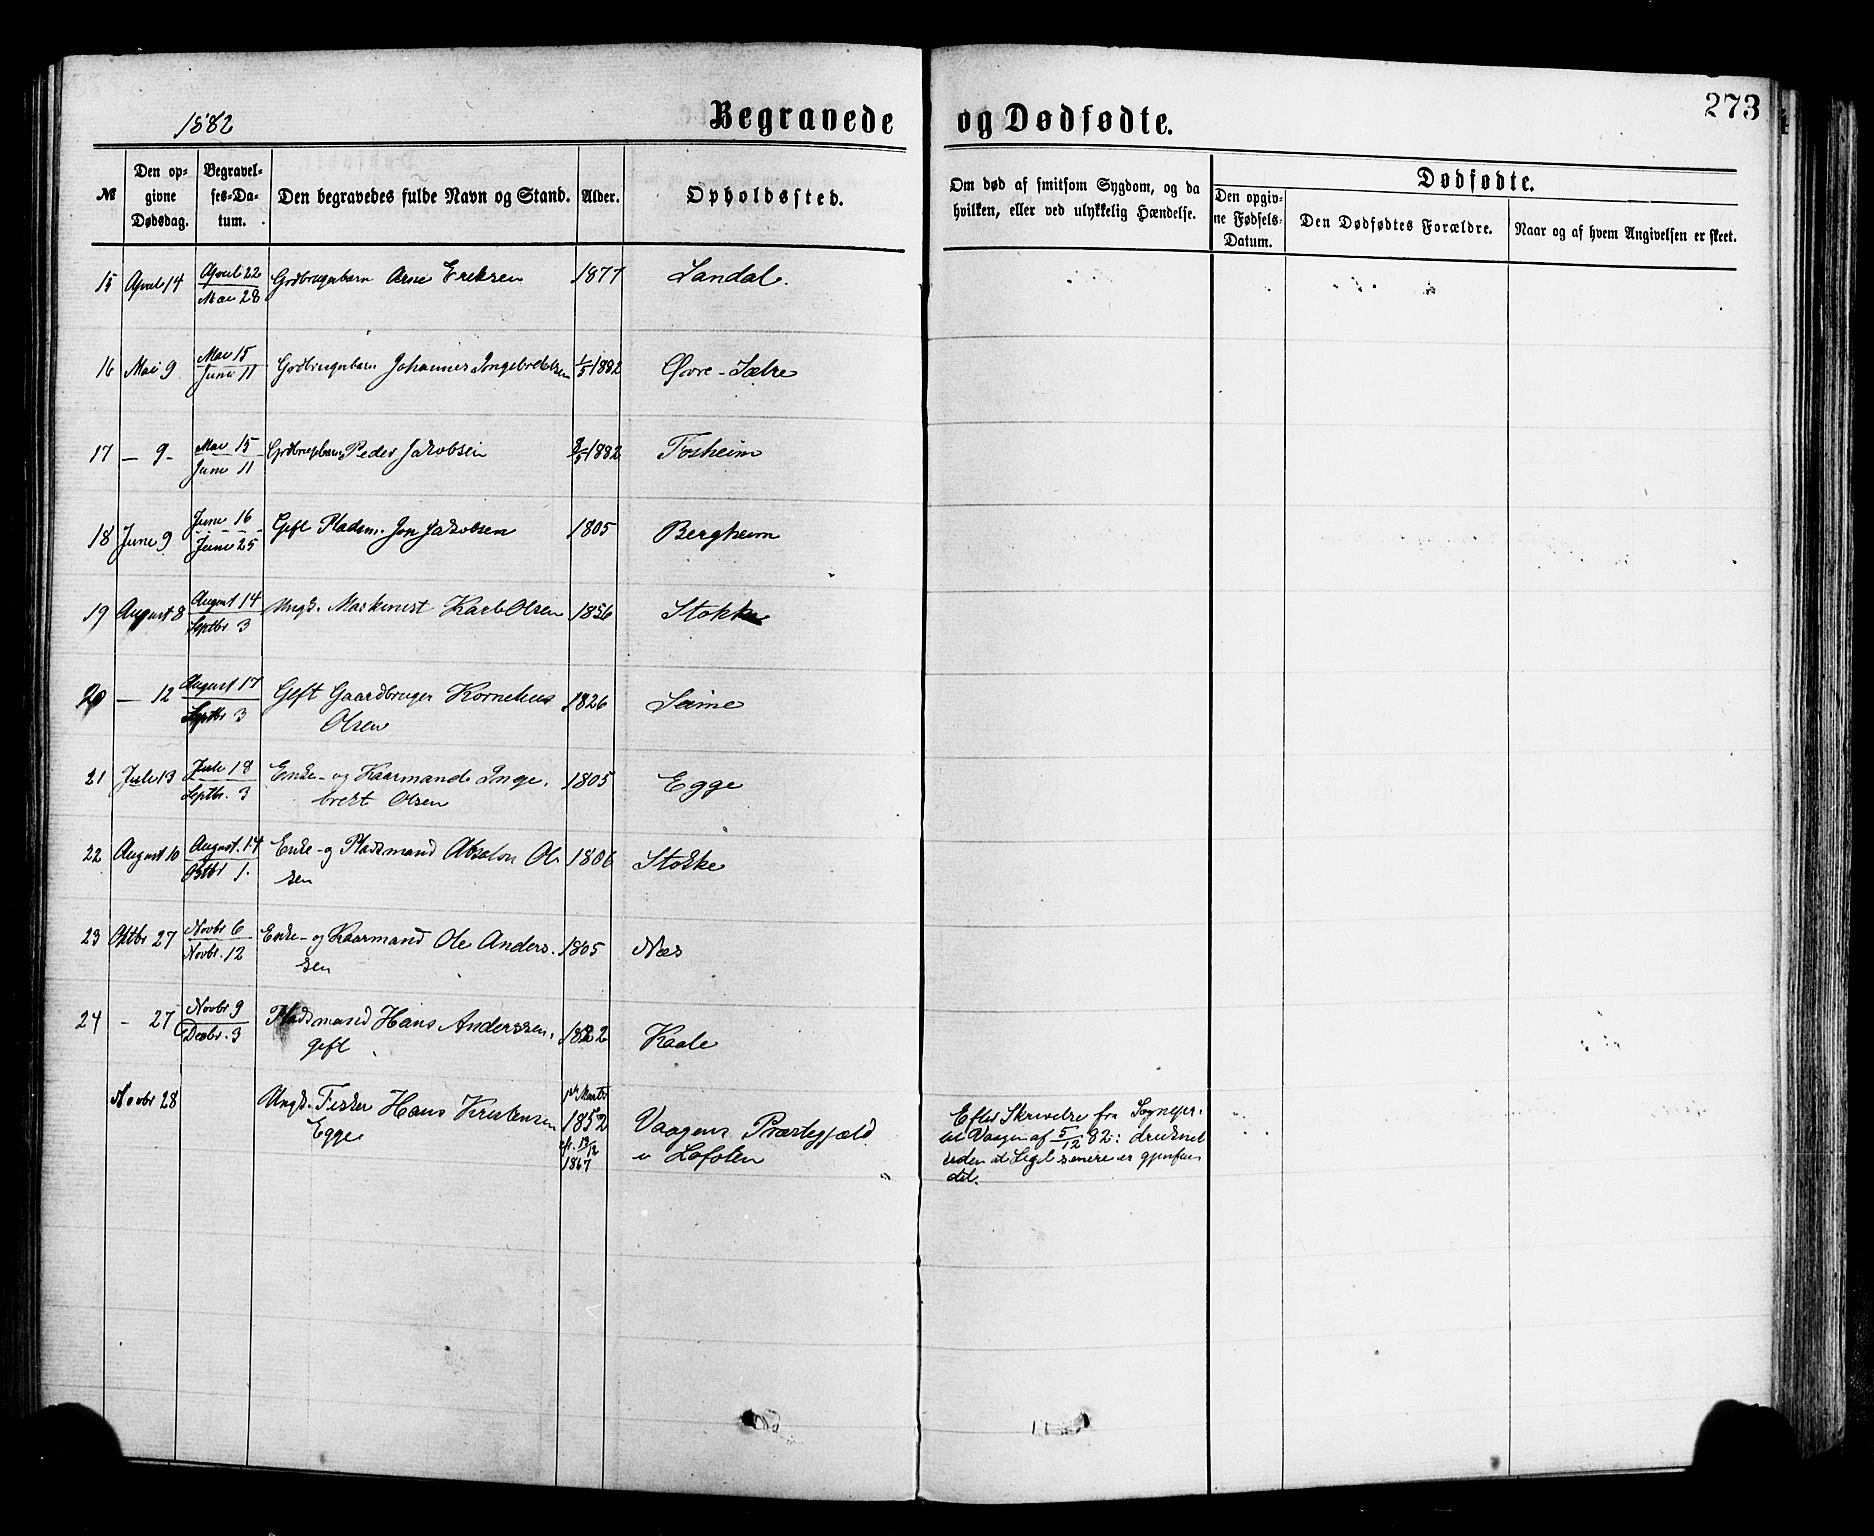 1882
Begravede
og Dødfødte.
273
№
Den op-
givne
Dødsdag.
Begravel-
ses-Da-
tum.
Den begravedes fulde Navn og Stand.
Alder.
Opholdssted.
Om død af smitsom Sygdom, og da
hvilken, eller ved ulykkelig Hændelse.
Dødfødte.
Den opgiv-
ne Fødsels-
Datum.
Den Dødfødtes Forældre.
Naar og af hvem Angivelsen er skeet.
15 April 14 April 22 / Mai 28 Grdbrugrbarn Arne Eriksen 1877 Sandal.
16 Mai 9 Mai 15 / Juni 11 Grdbrugrbarn Johannes Ingebretsen 1/5 1882 Øvre-Sælre
17 — 9 - Mai 15 / Juni 11 Grdbrugrbarn Peder Jakobsen /5 1882 Tosheim
18 Juni 9 Juni 16 / Juni 25 Gift Pladsm. Jon Jakobsen 1805 Bergheim
19 August 8 August 14 / Septbr 3 Ungk. Maskinist Karl Olsen 1856 Stokke
20 — 12 August 17 / Septbr 3 Gift Gaardbruger Kornelius 1826 Seime
Olsen
21 Juli 13 Juli 18 / Septbr. 3 Enke- og Kaarmand Inge- 1805 Egge
bret Olsen
22 August 10 August. 14 / Oktbr 1. Enke- og Pladsmand Absalon Ol- 1806 Stokke
sen
23 Oktbr 27 Novbr 6 / Novbr. 12 Enke- og Kaarmand Ole Anders- 1805 Næs
sen
24 - 27 Novbr 9 / Decbr. 3 Pladsmand Hans Anderssen, Kaale
gift
Novbr 28 Ungk. Fisker Hans Kristensen 1852 Vaagens Præstegjæld
Egge
i Lofoten
1867
Efter Skrivelse fra Sognepr.
til Vaagen af 5/12 82: druknet
uden at Liget senere er gjenfun
det.